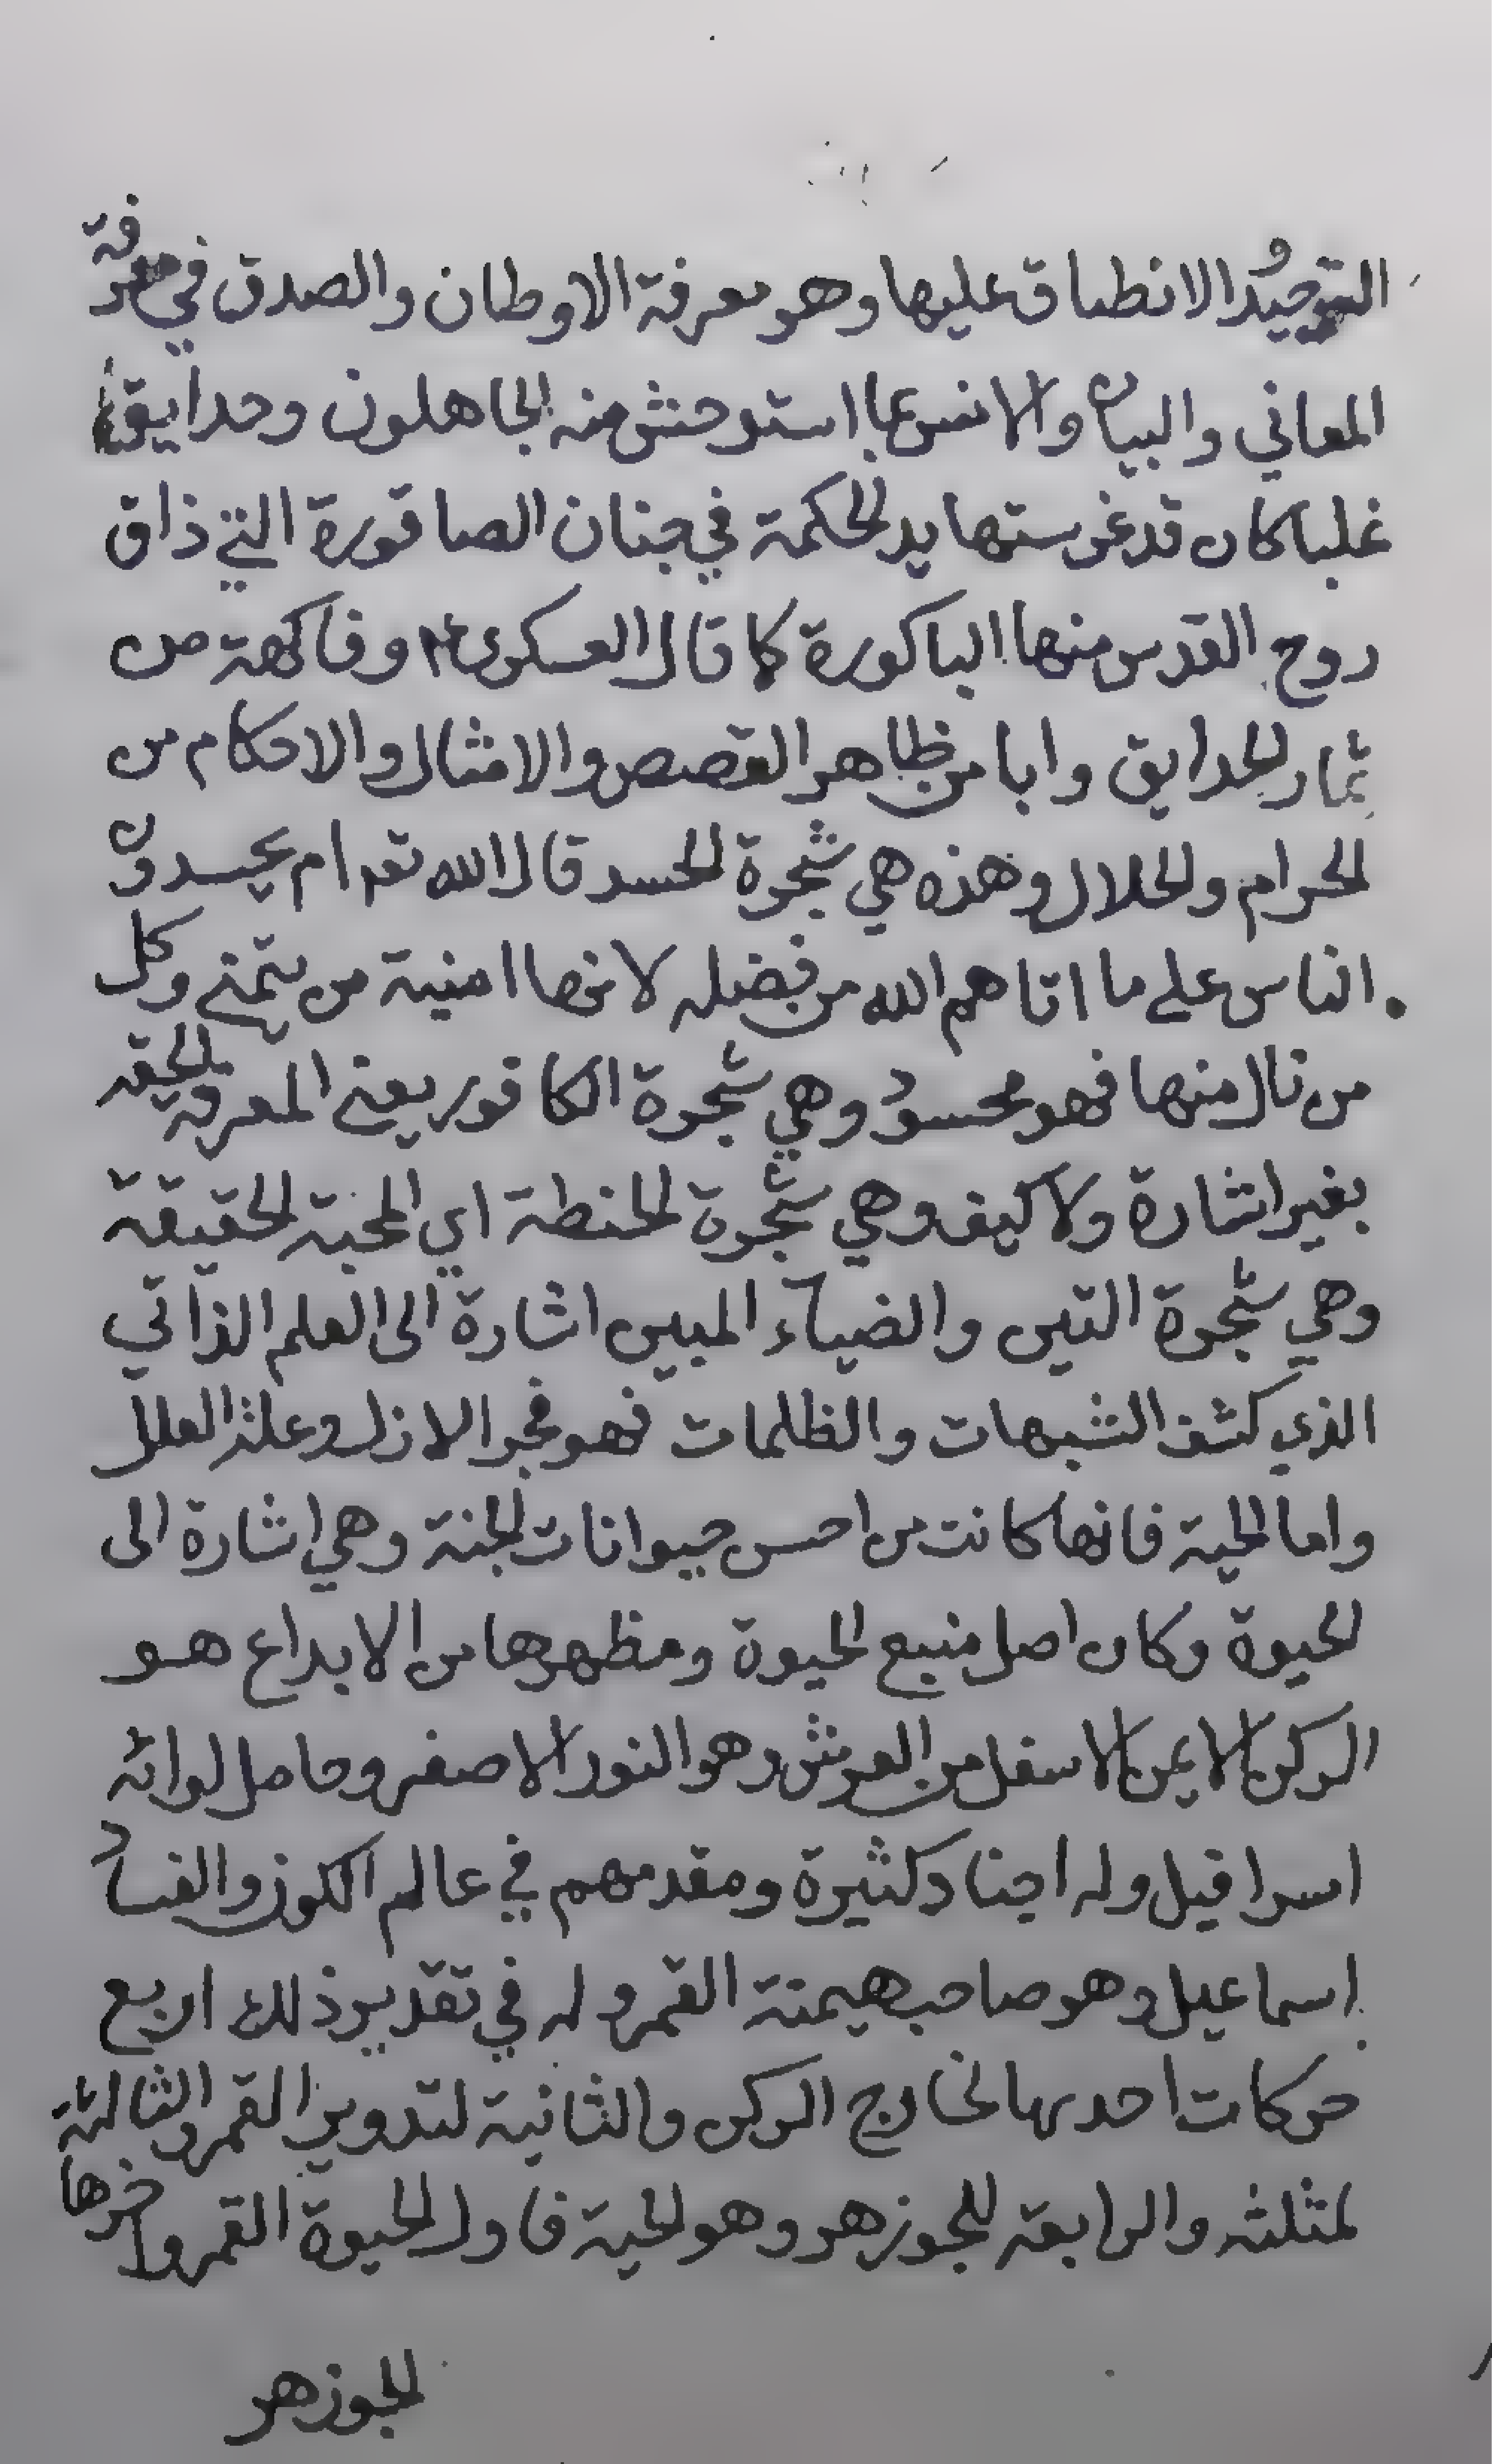 التوحيد الانطباق عليها وهو معرفة الاوطان والصدق في معرفة
المعاني والبيان والانس بما استوحش منه الجاهلون وحدايق
غلبا كان قد غرستها يد الحكمة في جنان الصاقورة التي ذاق
روح القدس منها الباكورة كما قال العسكرى ع وفاكهة من
ثمار الحدايق وابا من ظاهر القصص والامثال والاحكام من
الحرام والحلال وهذه هي شجرة الحسد قال الله تعم ام يحسدون
الناس على ما اتاهم الله من فضله لانها امنية من يتمنى وكل
من نال منها فهو محسود وهي شجرة الكافور يعني المعرفة الحقه
بغير اشارة ولا كيف وهي شجرة الحنطة اي المحبة الحقيقة
وهي شجرة التين والضياء المبين اشارة الى العلم الذاتي
الذي كشف الشبهات والظلمات فهو فجر الازل وعلة العلل
واما الحية فانها كانت من احسن حيوانات الجنة وهي اشارة الى
الحيوة وكان اصل منبع الحيوة ومظهرها من الابداع هو
الركن الايمن الاسفل من العرش وهو النور الاصفر وحامل لوائه
اسرافيل وله اجناد كثيرة ومقدمهم في عالم الكون والفساد
اسماعيل وهو صاحب هيمنة القمر وله في تقدير ذلك اربع
حركات احديها لخارج المركز والثانية لتدوير القمر والثالثة
لمثلثه والرابعة للجوزهر وهو الحية فاول الحيوة القمر واخرها
الجوزهر